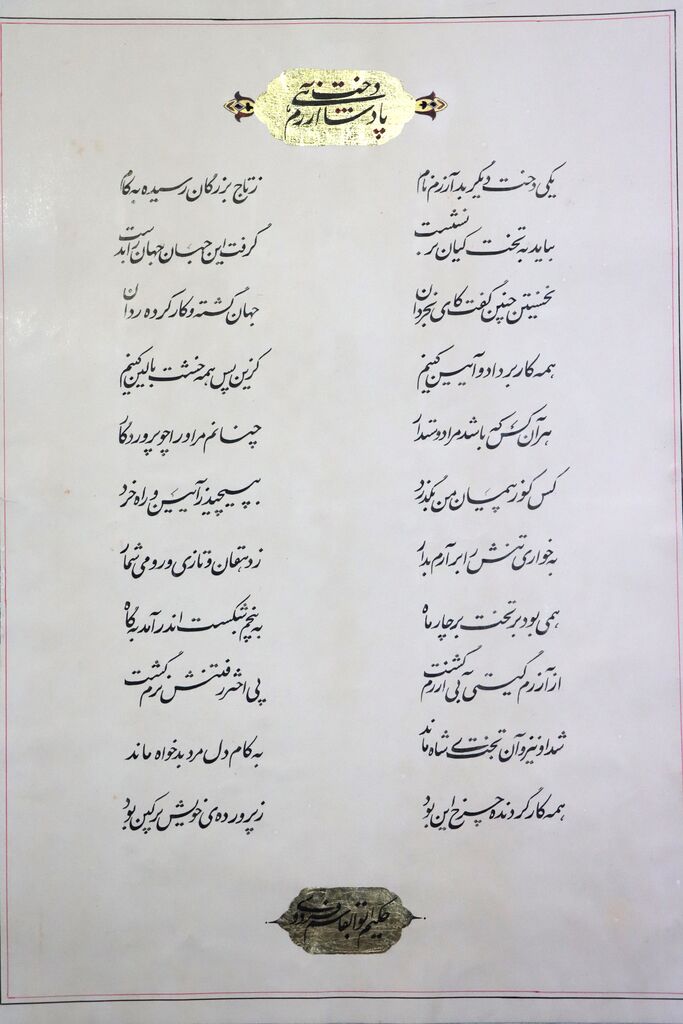 پادشاهی آزرم دخت
یکی دخت دیگر بد آزرم نام ز تاج بزرگان رسیده به کام
بیامد به تخت کیان برنشست گرفت این جهان جهان را بدست
نخستین چنین گفت کای بخردان جهان گشته و کار کرده ردان
همه کار بر داد و آیین کنیم کزین پس همه خشت بالین کنیم
هر آن کس که باشد مرا دوستدار چنانم مر او را چو پروردگار
کس کو ز پیمان من بگذرد بپیچد ز آیین و راه خرد
به خواری تنش را بر آرم بدار ز دهقان و تازی و رومی شمار
همی بود بر تخت بر چار ماه به پنجم شکست اندر آمد به گاه
از آزرم گیتی بی آزرم گشت پی اختر رفتنش نرم گشت
شد او نیز و آن تخت بی شاه ماند به کام دل مرد بدخواه ماند
همه کار گردنده چرخ این بود ز پرورده‌ی خویش پر کین بود
حکیم ابوالقاسم فردوسی